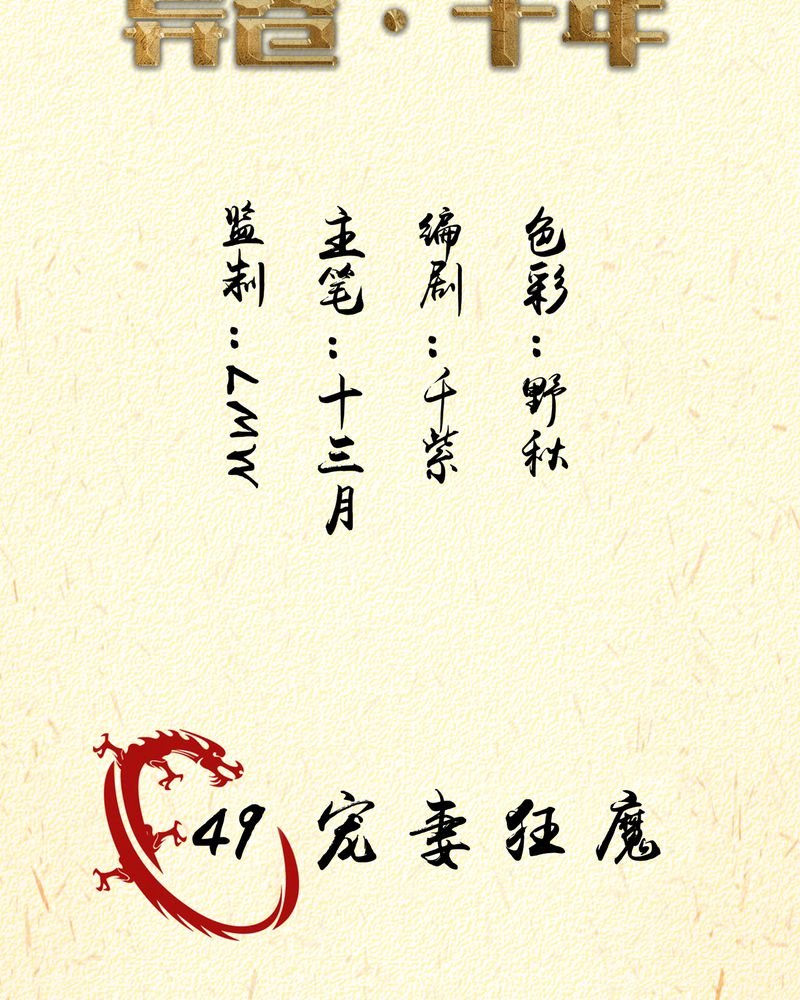 监制：
主笔：十三月
编剧：千紫
色彩：野秋
49 宠妻狂魔